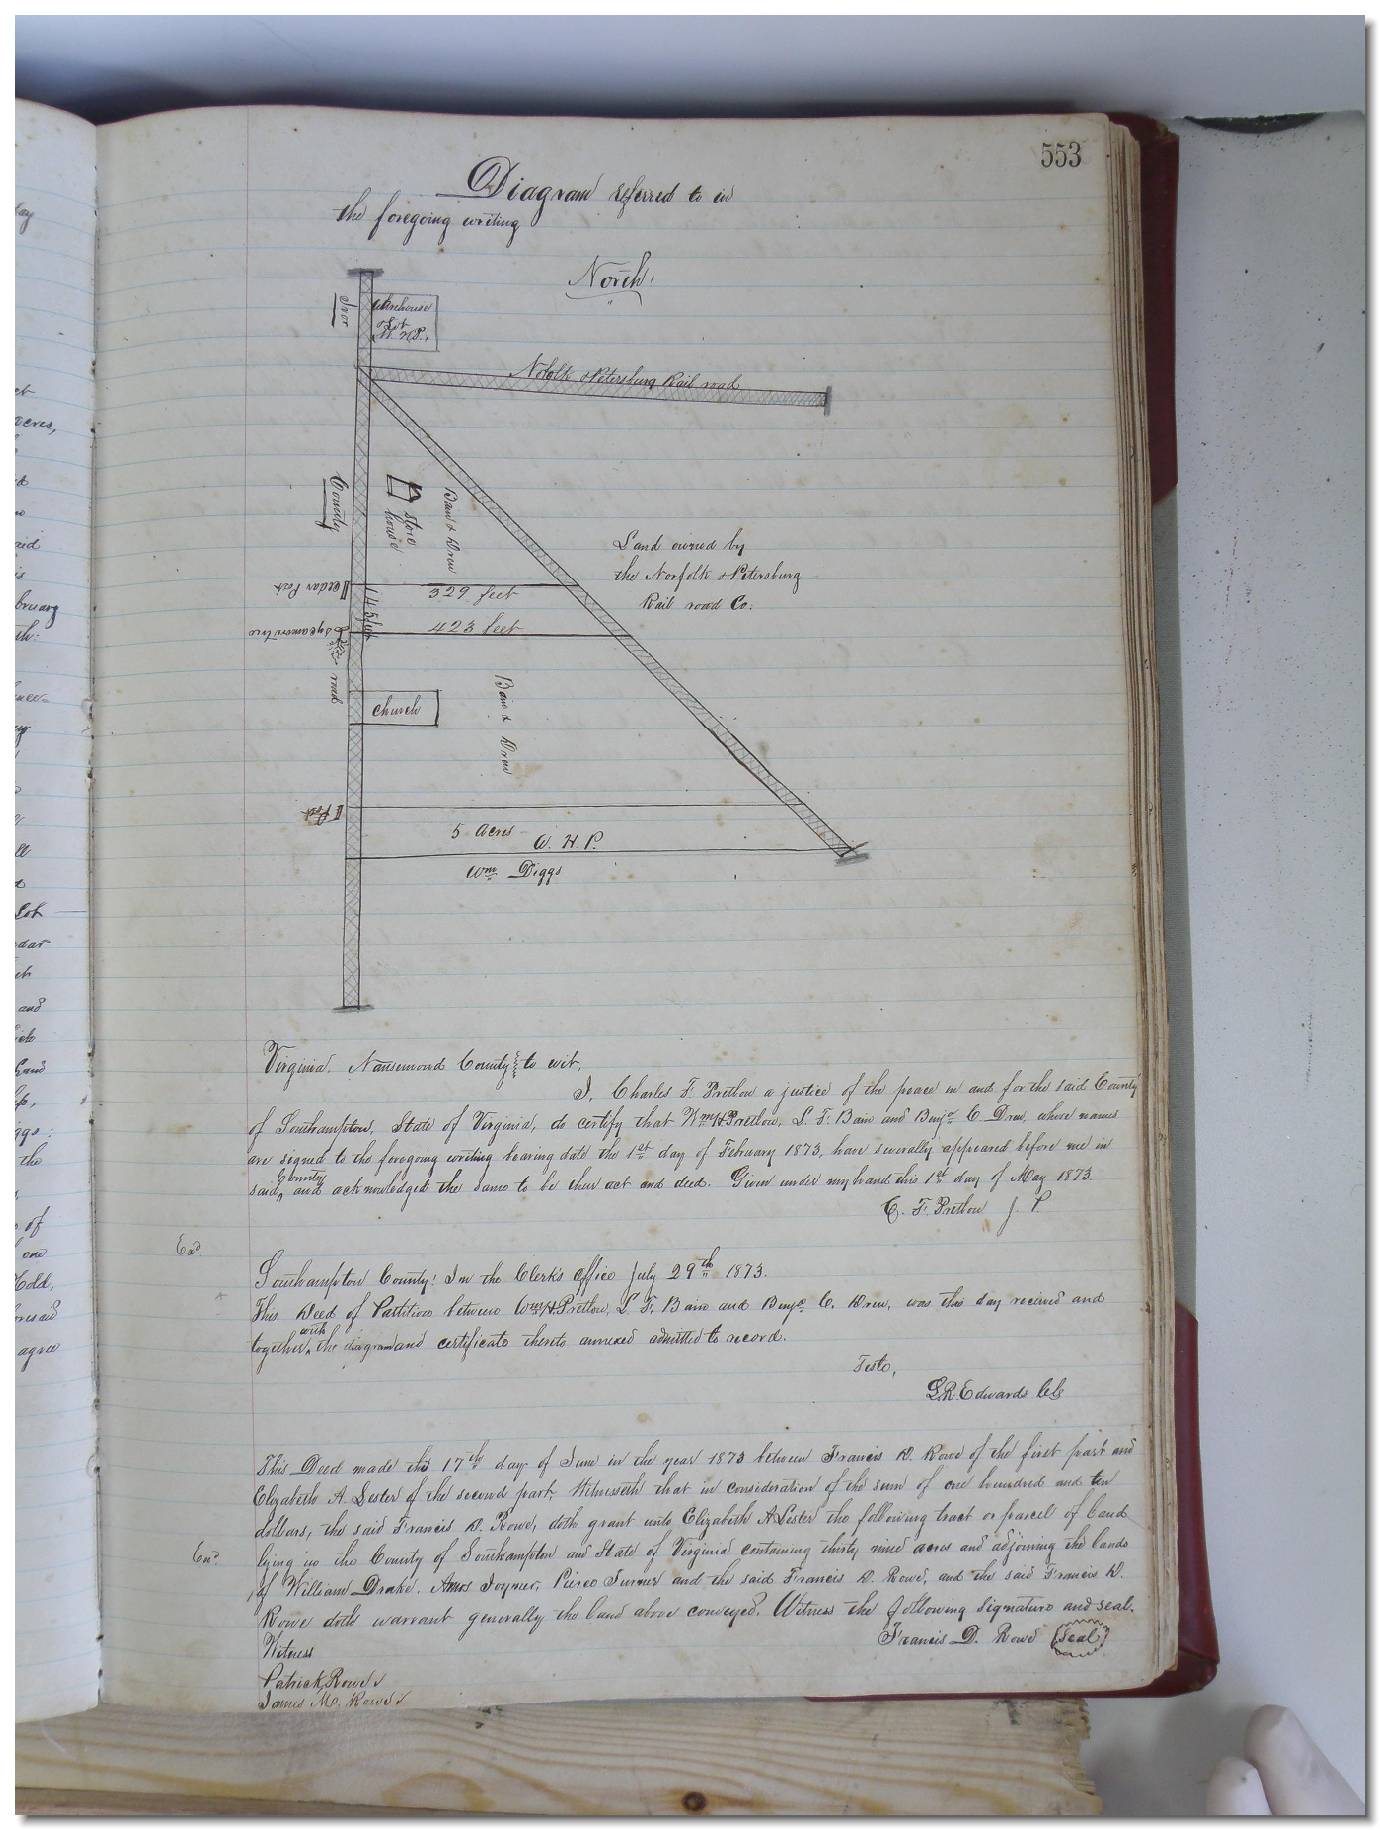 553
Diagram referred to in
the foregoing writing
North.
Ivor
Warehouse
Lot
W. H. P.
Norfolk & Petersburg Rail road
County
store
house
Bain & Drew
Land owned by
the Norfolk & Petersburg
Rail road Co.
Cedar Post
329 feet
145 feet
sycamore tree
423 feet
road
church
Bain & Drew
Post
5 Acres
W. H. P.
Wm Diggs
Virginia. Nansemond County to wit,
I, Charles F. Pretlow a justice of the peace in and for the said County
of Southampton, State of Virginia, do certify that Wm H Pretlow, L. F. Bain and Benja C. Drew, whose names
are signed to the foregoing writing bearing date the 1st day of February 1873, have severally appeared before me in
said County and acknowledged the same to be their act and deed. Given under my hand this 1st day of May 1873.
C. F. Pretlow J. P.
Exd.
Southampton County: In the Clerk's Office July 29th 1873.
This Deed of Partition between Wm H Pretlow, L. F. Bain and Benja C. Drew, was this day received and
together with the diagram and certificate thereto annexed admitted to record.
Teste,
L. R. Edwards Clk
This Deed made this 17th day of June in the year 1873 between Francis D. Rowe of the first part and
Elizabeth A. Lester of the second part, Witnesseth that in consideration of the sum of one hundred and ten
dollars, the said Francis D. Rowe, doth grant unto Elizabeth A Lester the following tract or parcel of land
Exd.
lying in the County of Southampton and State of Virginia containing thirty nine acres and adjoining the lands
of William Drake, Amos Joyner, Pierce Turner and the said Francis D. Rowe, and the said Francis D.
Rowe doth warrant generally the land above conveyed. Witness the following signature and seal.
Francis D. Rowe (Seal)
Witness
Patrick Rowe
James M. Rowe